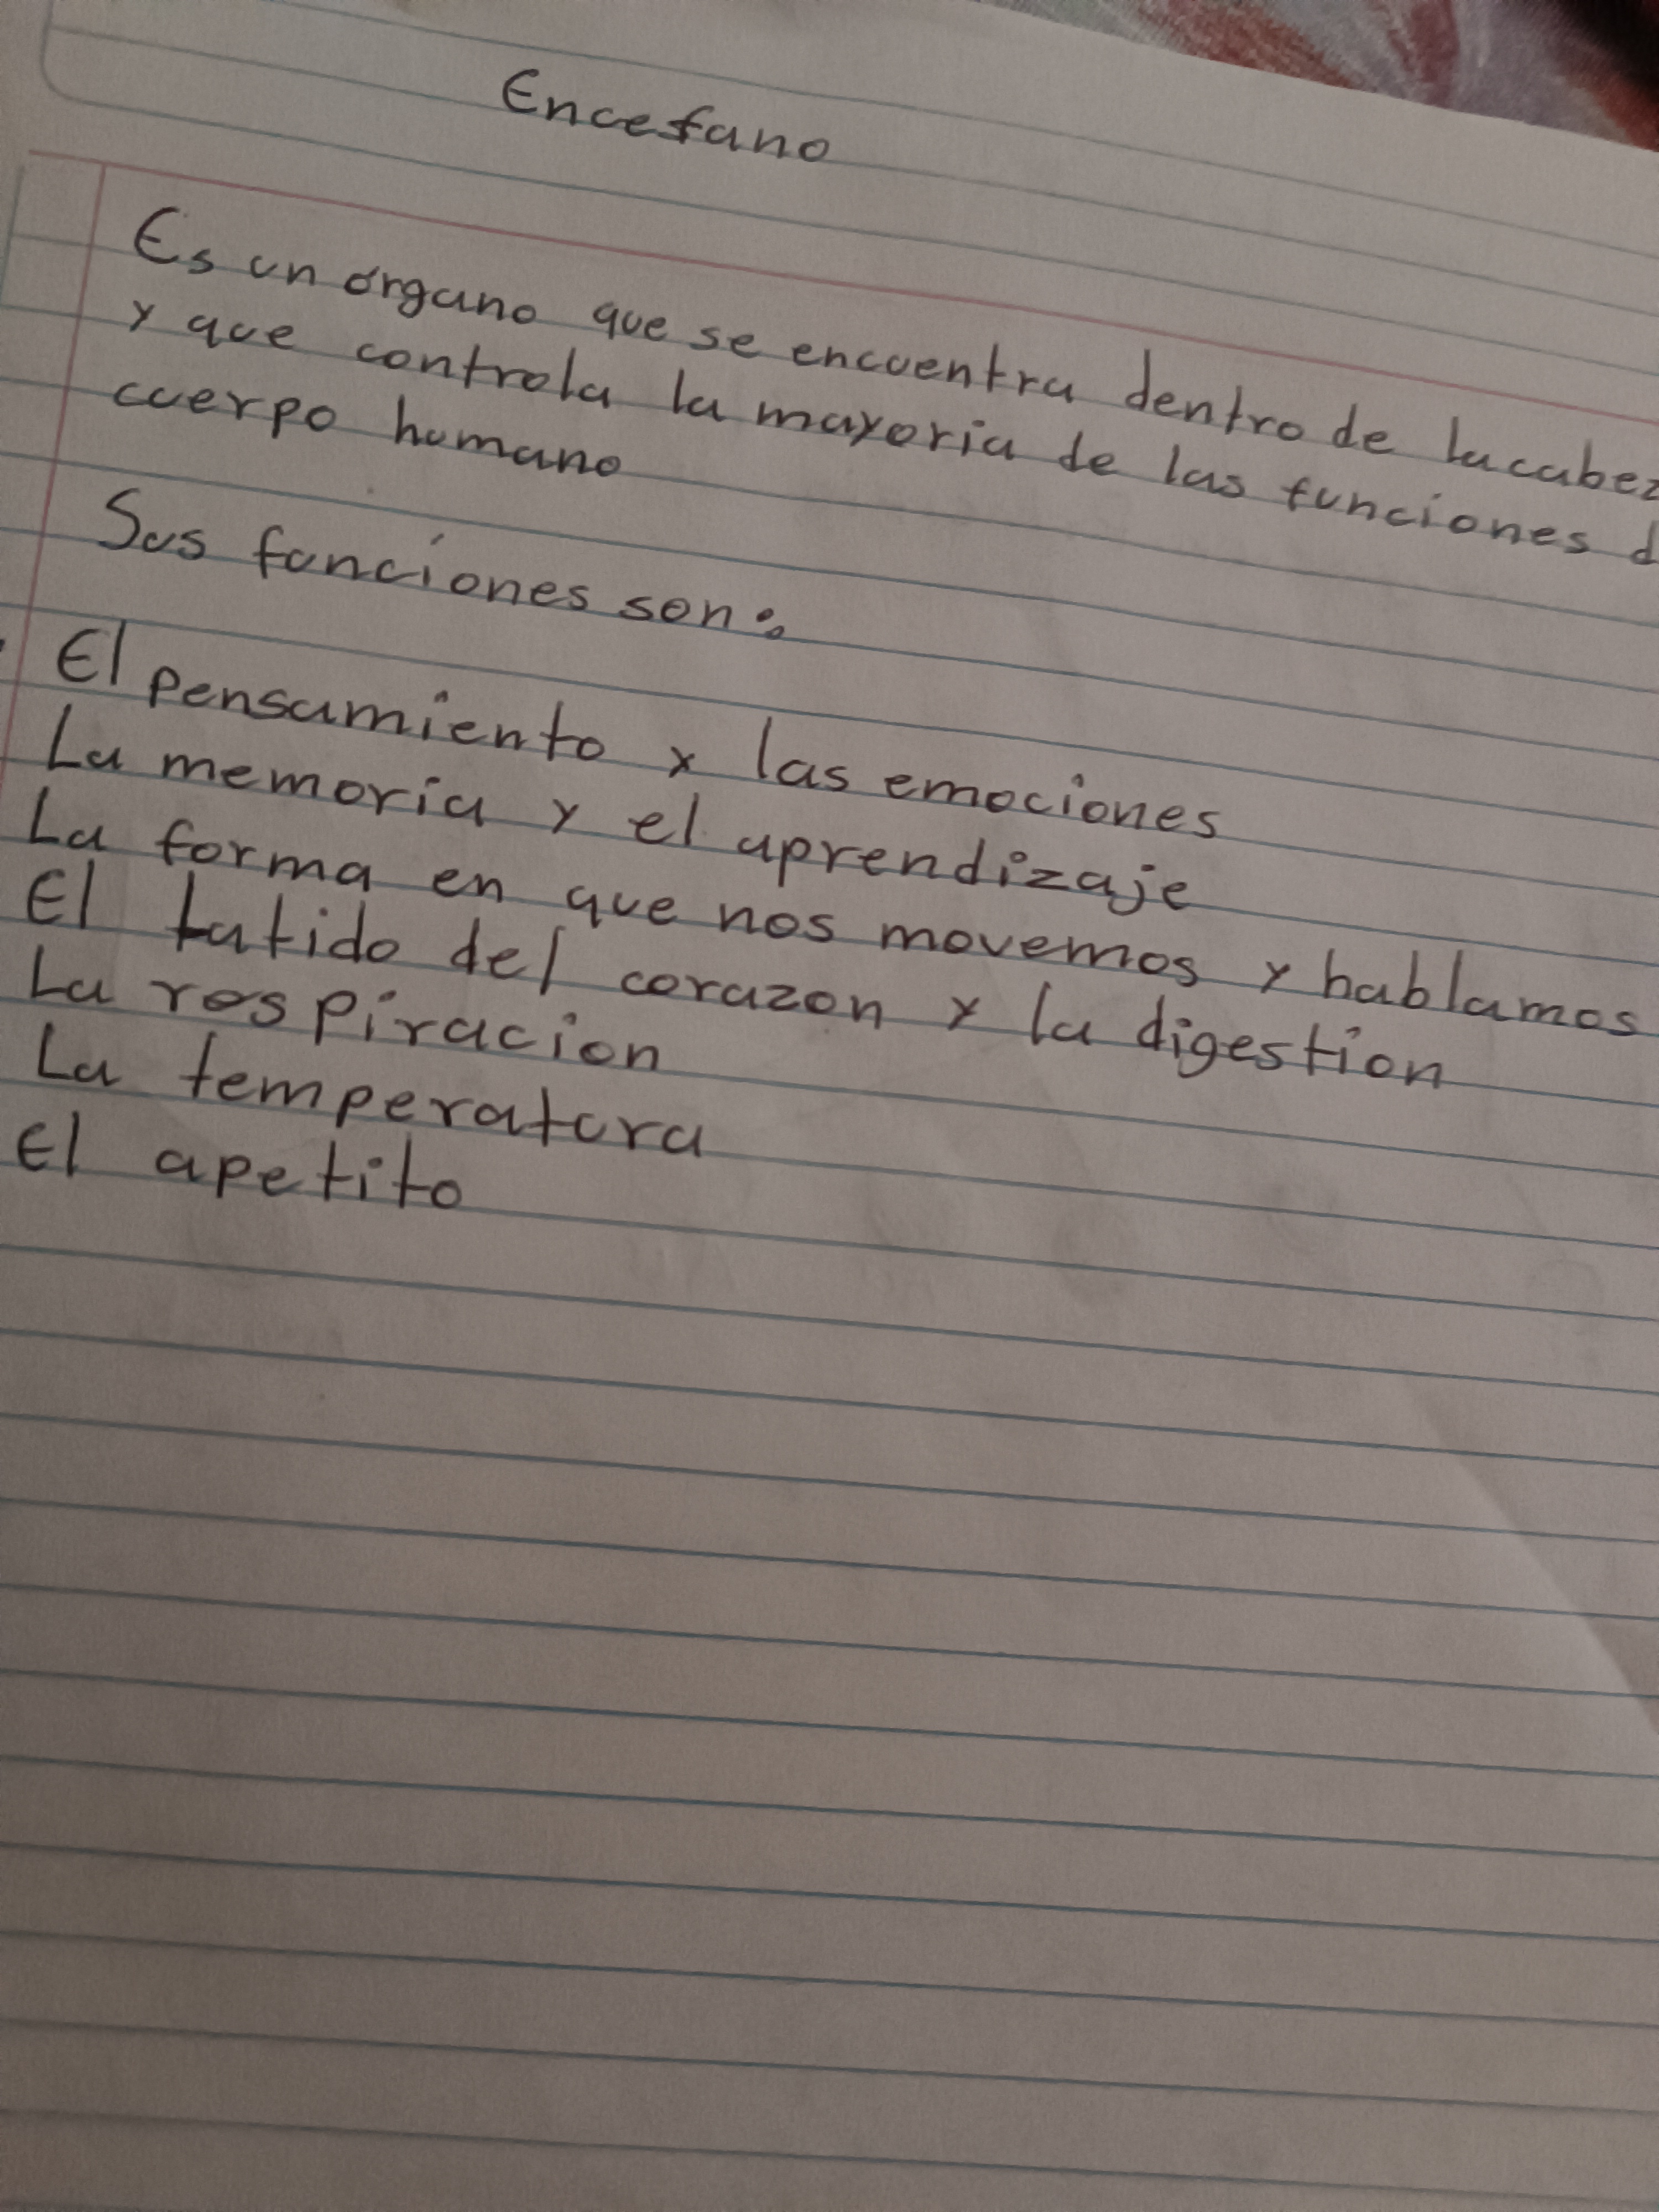 Encefano
Es un órgano que se encuentra dentro de la cabez
y que controla la mayoria de las funciones d
cuerpo humano
Sus funciones son:
El pensamiento y las emociones
La memoria y el aprendizaje
La forma en que nos movemos y hablamos
El latido del corazon y la digestion
La respiracion
La temperatura
El apetito